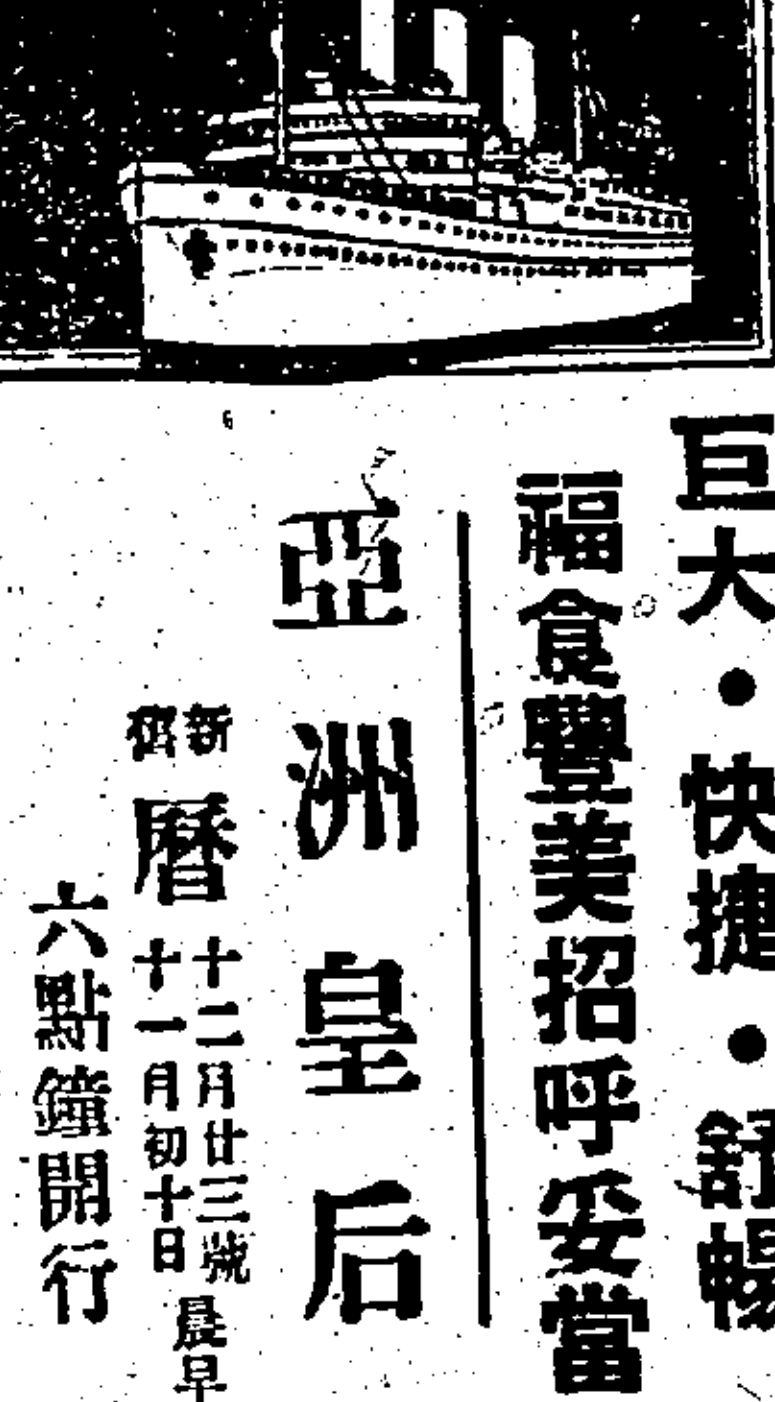 巨大•快捷•舒暢
福食豐美招呼妥當
亞洲皇后
新舊曆
十二月廿三號
十一月初十日
晨早
六點鐘開行